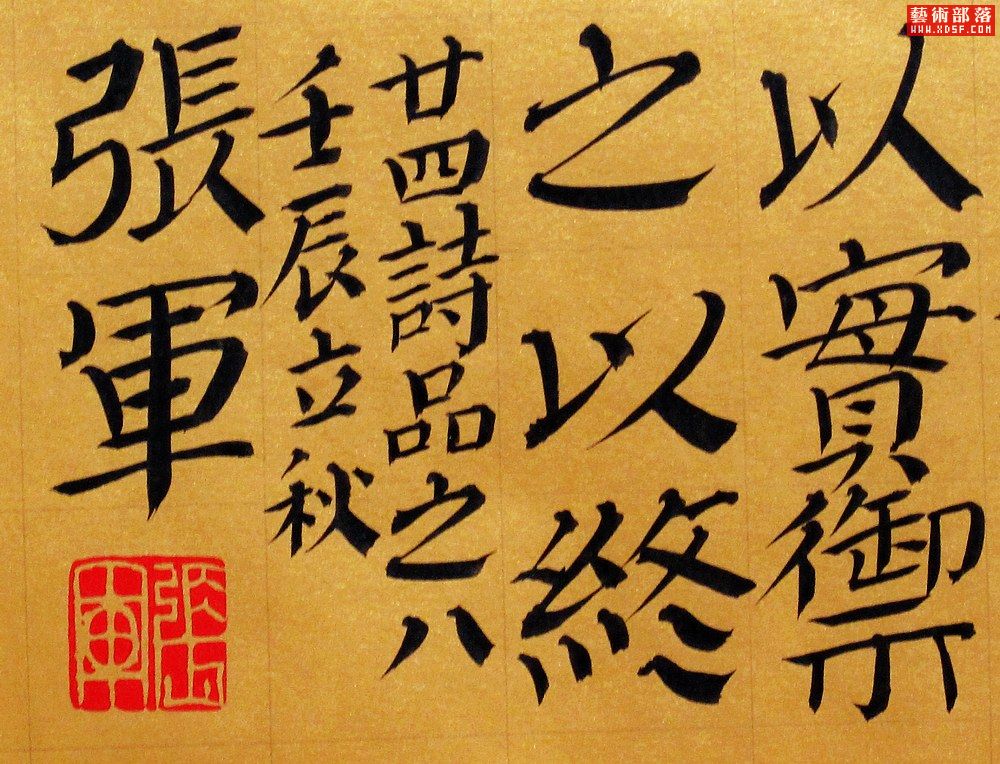 藝術部落
WWW.XDSF.COM
以實禦
之以終
廿四詩品之八
壬辰立秋
張軍